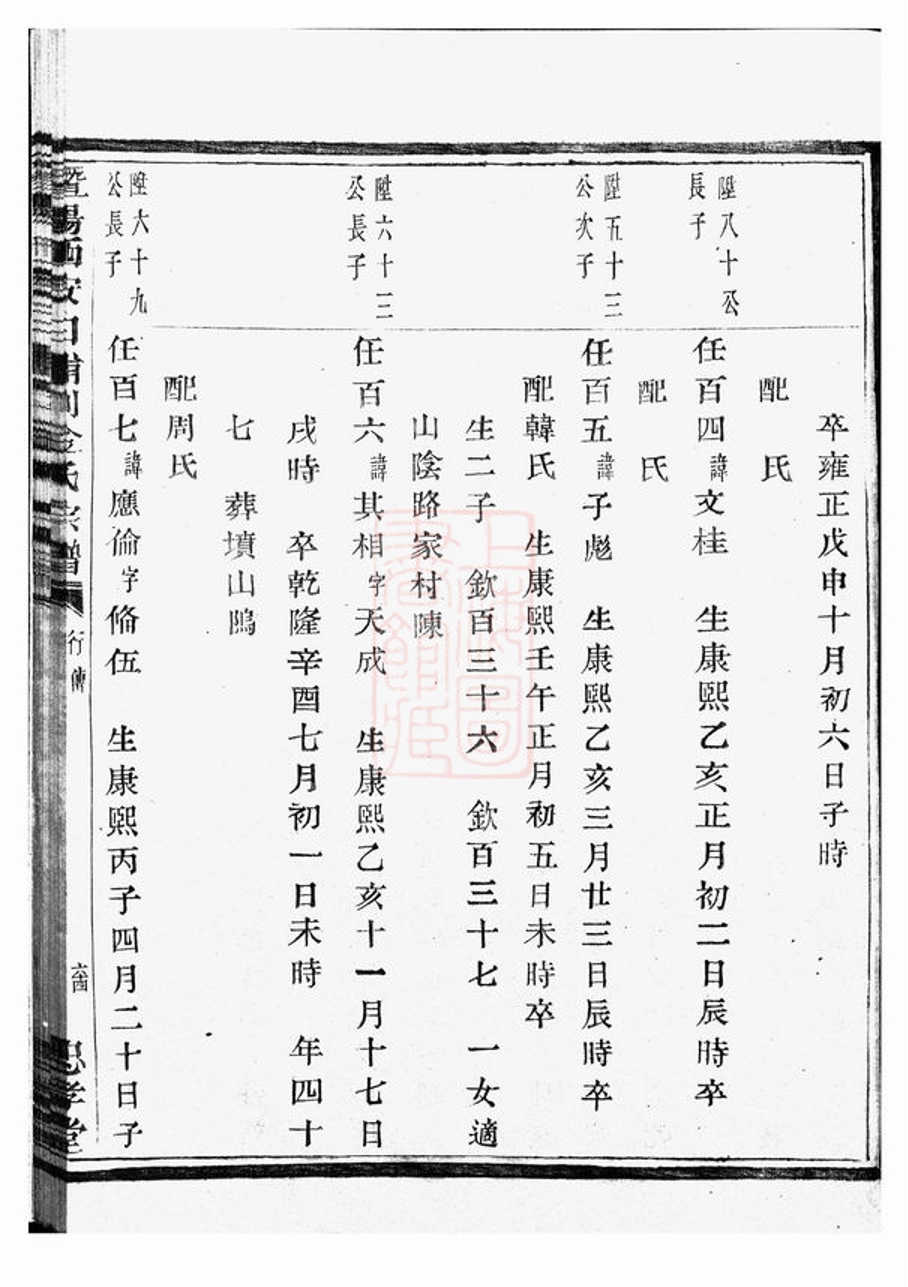 卒雍正戊申十月初六日子時
配　氏
陞八十公
長子
任百四諱文桂　生康熙乙亥正月初二日辰時卒
配　氏
陞五十三
公次子
任百五諱子彪　生康熙乙亥三月廿三日辰時卒
配韓氏　生康熙壬午正月初五日未時卒
生二子　欽百三十六　欽百三十七　一女適
山陰路家村陳
陞六十三
公長子
任百六諱其相字天成　生康熙乙亥十一月十七日
戌時　卒乾隆辛酉七月初一日未時　年四十
七　葬墳山隖
配周氏
陞六十九
公長子
任百七諱應倫字脩伍　生康熙丙子四月二十日子
暨陽　安　浦　金氏宗譜
行傳
六十四
忠孝堂
上海圖書館藏